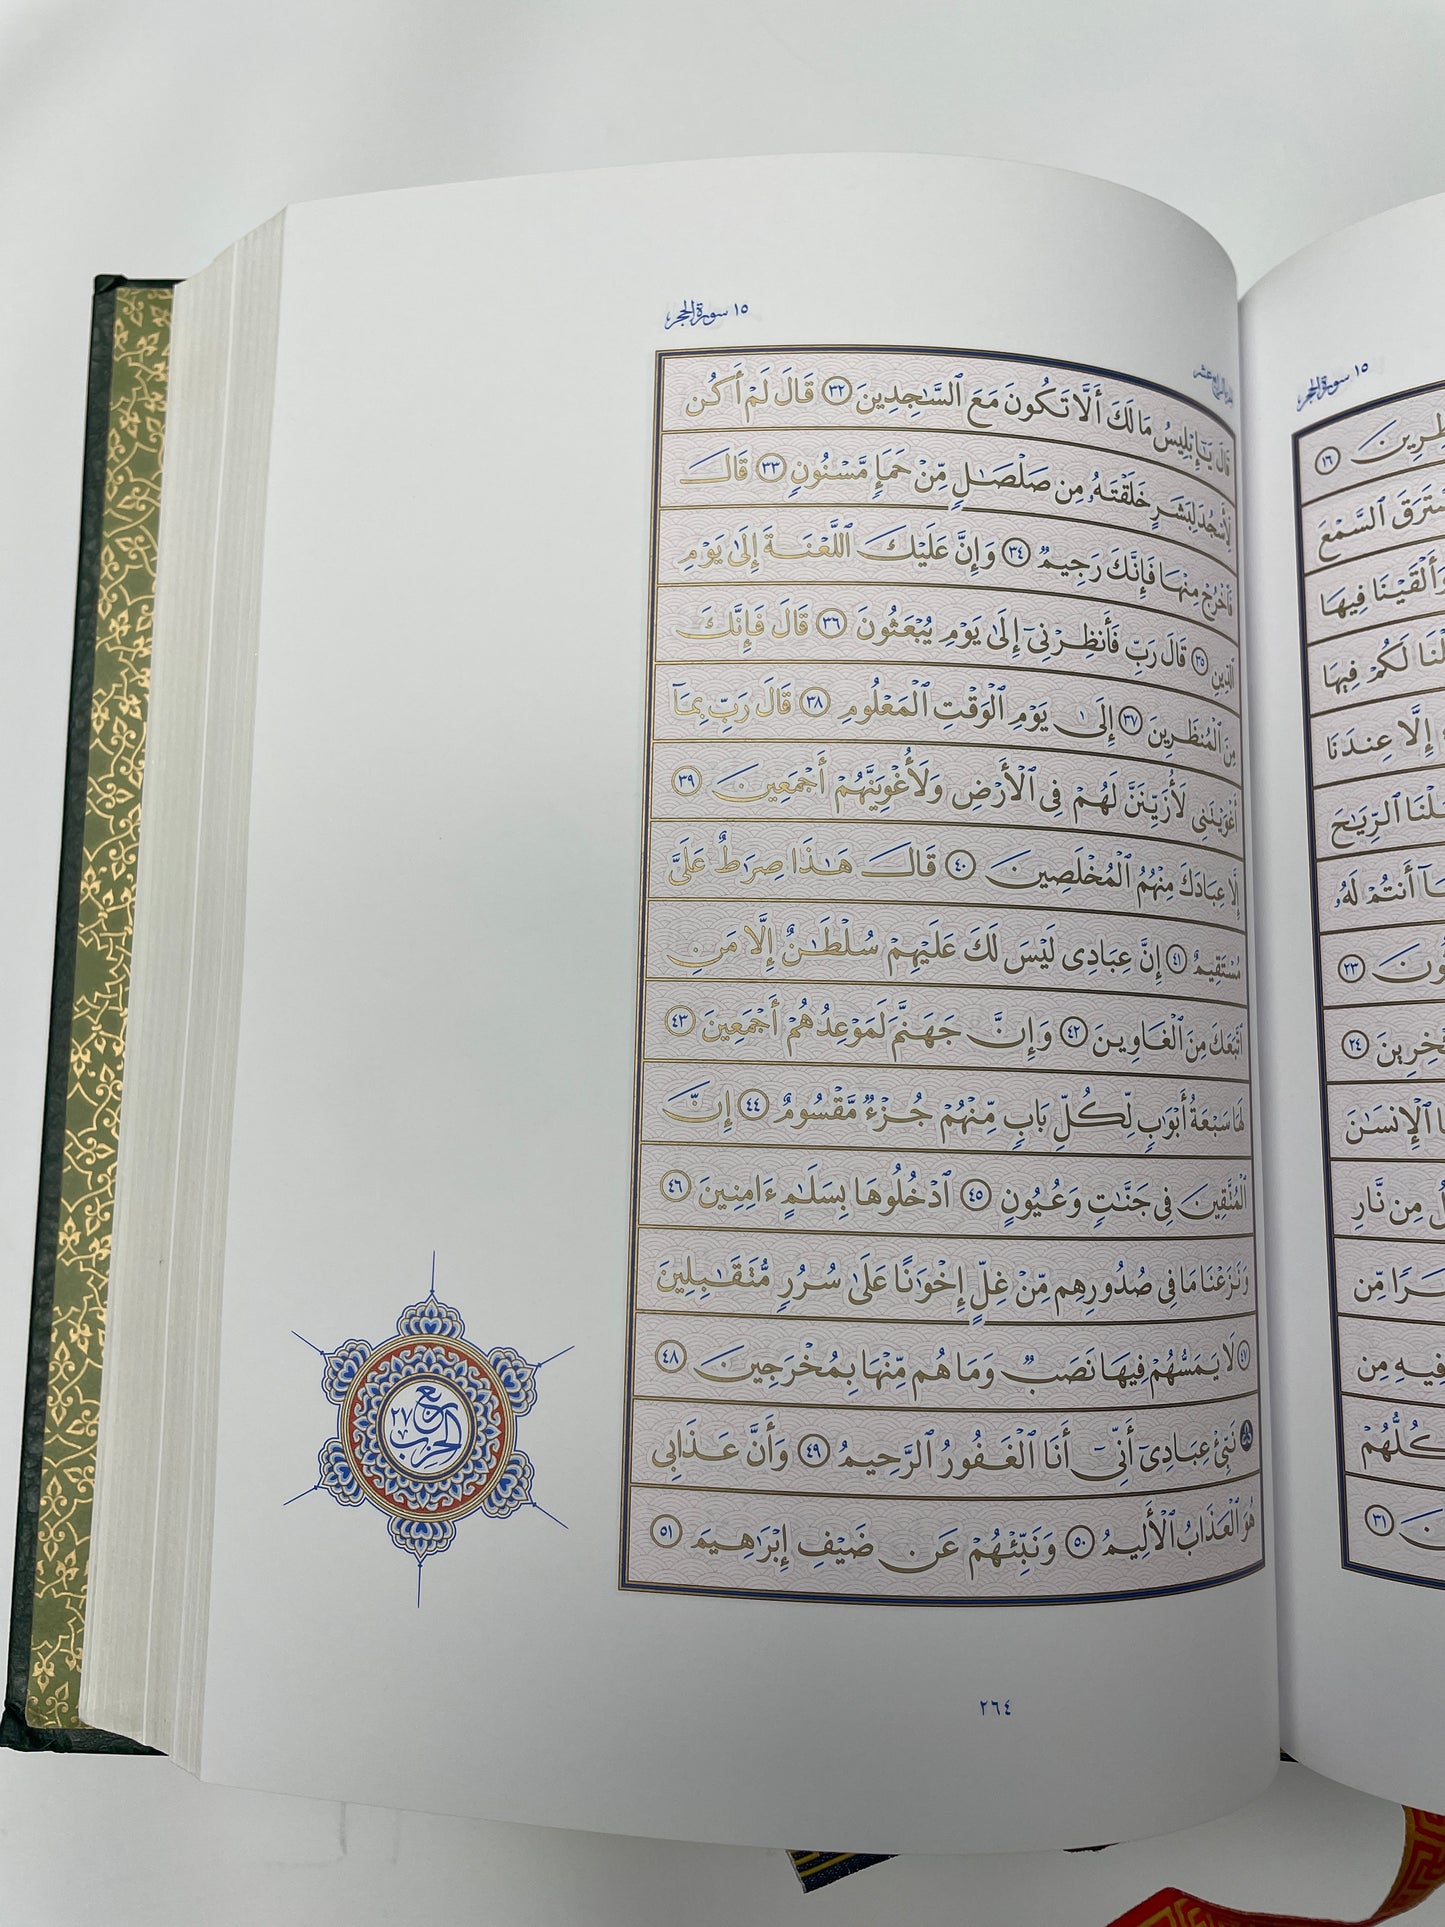 ١٥ سورة الحجر
الجزء الرابع عشر
قَالَ يَٰٓإِبْلِيسُ مَا لَكَ أَلَّا تَكُونَ مَعَ ٱلسَّٰجِدِينَ ٣٢ قَالَ لَمْ أَكُن
لِّأَسْجُدَ لِبَشَرٍ خَلَقْتَهُۥ مِن صَلْصَٰلٍ مِّنْ حَمَإٍ مَّسْنُونٍ ٣٣ قَالَ
فَٱخْرُجْ مِنْهَا فَإِنَّكَ رَجِيمٌ ٣٤ وَإِنَّ عَلَيْكَ ٱللَّعْنَةَ إِلَىٰ يَوْمِ
ٱلدِّينِ ٣٥ قَالَ رَبِّ فَأَنظِرْنِىٓ إِلَىٰ يَوْمِ يُبْعَثُونَ ٣٦ قَالَ فَإِنَّكَ
مِنَ ٱلْمُنظَرِينَ ٣٧ إِلَىٰ يَوْمِ ٱلْوَقْتِ ٱلْمَعْلُومِ ٣٨ قَالَ رَبِّ بِمَآ
أَغْوَيْتَنِى لَأُزَيِّنَنَّ لَهُمْ فِى ٱلْأَرْضِ وَلَأُغْوِيَنَّهُمْ أَجْمَعِينَ ٣٩
إِلَّا عِبَادَكَ مِنْهُمُ ٱلْمُخْلَصِينَ ٤٠ قَالَ هَٰذَا صِرَٰطٌ عَلَىَّ
مُسْتَقِيمٌ ٤١ إِنَّ عِبَادِى لَيْسَ لَكَ عَلَيْهِمْ سُلْطَٰنٌ إِلَّا مَنِ
ٱتَّبَعَكَ مِنَ ٱلْغَاوِينَ ٤٢ وَإِنَّ جَهَنَّمَ لَمَوْعِدُهُمْ أَجْمَعِينَ ٤٣
لَهَا سَبْعَةُ أَبْوَٰبٍ لِّكُلِّ بَابٍ مِّنْهُمْ جُزْءٌ مَّقْسُومٌ ٤٤ إِنَّ
ٱلْمُتَّقِينَ فِى جَنَّٰتٍ وَعُيُونٍ ٤٥ ٱدْخُلُوهَا بِسَلَٰمٍ ءَامِنِينَ ٤٦
وَنَزَعْنَا مَا فِى صُدُورِهِم مِّنْ غِلٍّ إِخْوَٰنًا عَلَىٰ سُرُرٍ مُّتَقَٰبِلِينَ
٤٧ لَا يَمَسُّهُمْ فِيهَا نَصَبٌ وَمَا هُم مِّنْهَا بِمُخْرَجِينَ ٤٨
نَبِّئْ عِبَادِىٓ أَنِّىٓ أَنَا ٱلْغَفُورُ ٱلرَّحِيمُ ٤٩ وَأَنَّ عَذَابِى
هُوَ ٱلْعَذَابُ ٱلْأَلِيمُ ٥٠ وَنَبِّئْهُمْ عَن ضَيْفِ إِبْرَٰهِيمَ ٥١
ربع
الحزب ٢٧
٢٦٤
١٥ سورة الحجر
١٦
ٱلسَّمْعَ
وَأَلْقَيْنَا فِيهَا
لَكُمْ فِيهَا
إِلَّا عِندَنَا
ٱلرِّيَٰحَ
أَنتُمْ لَهُۥ
٢٣
٢٤
ٱلْإِنسَٰنَ
مِن نَّارِ
مِّن
فِيهِ مِن
كُلُّهُمْ
٣١